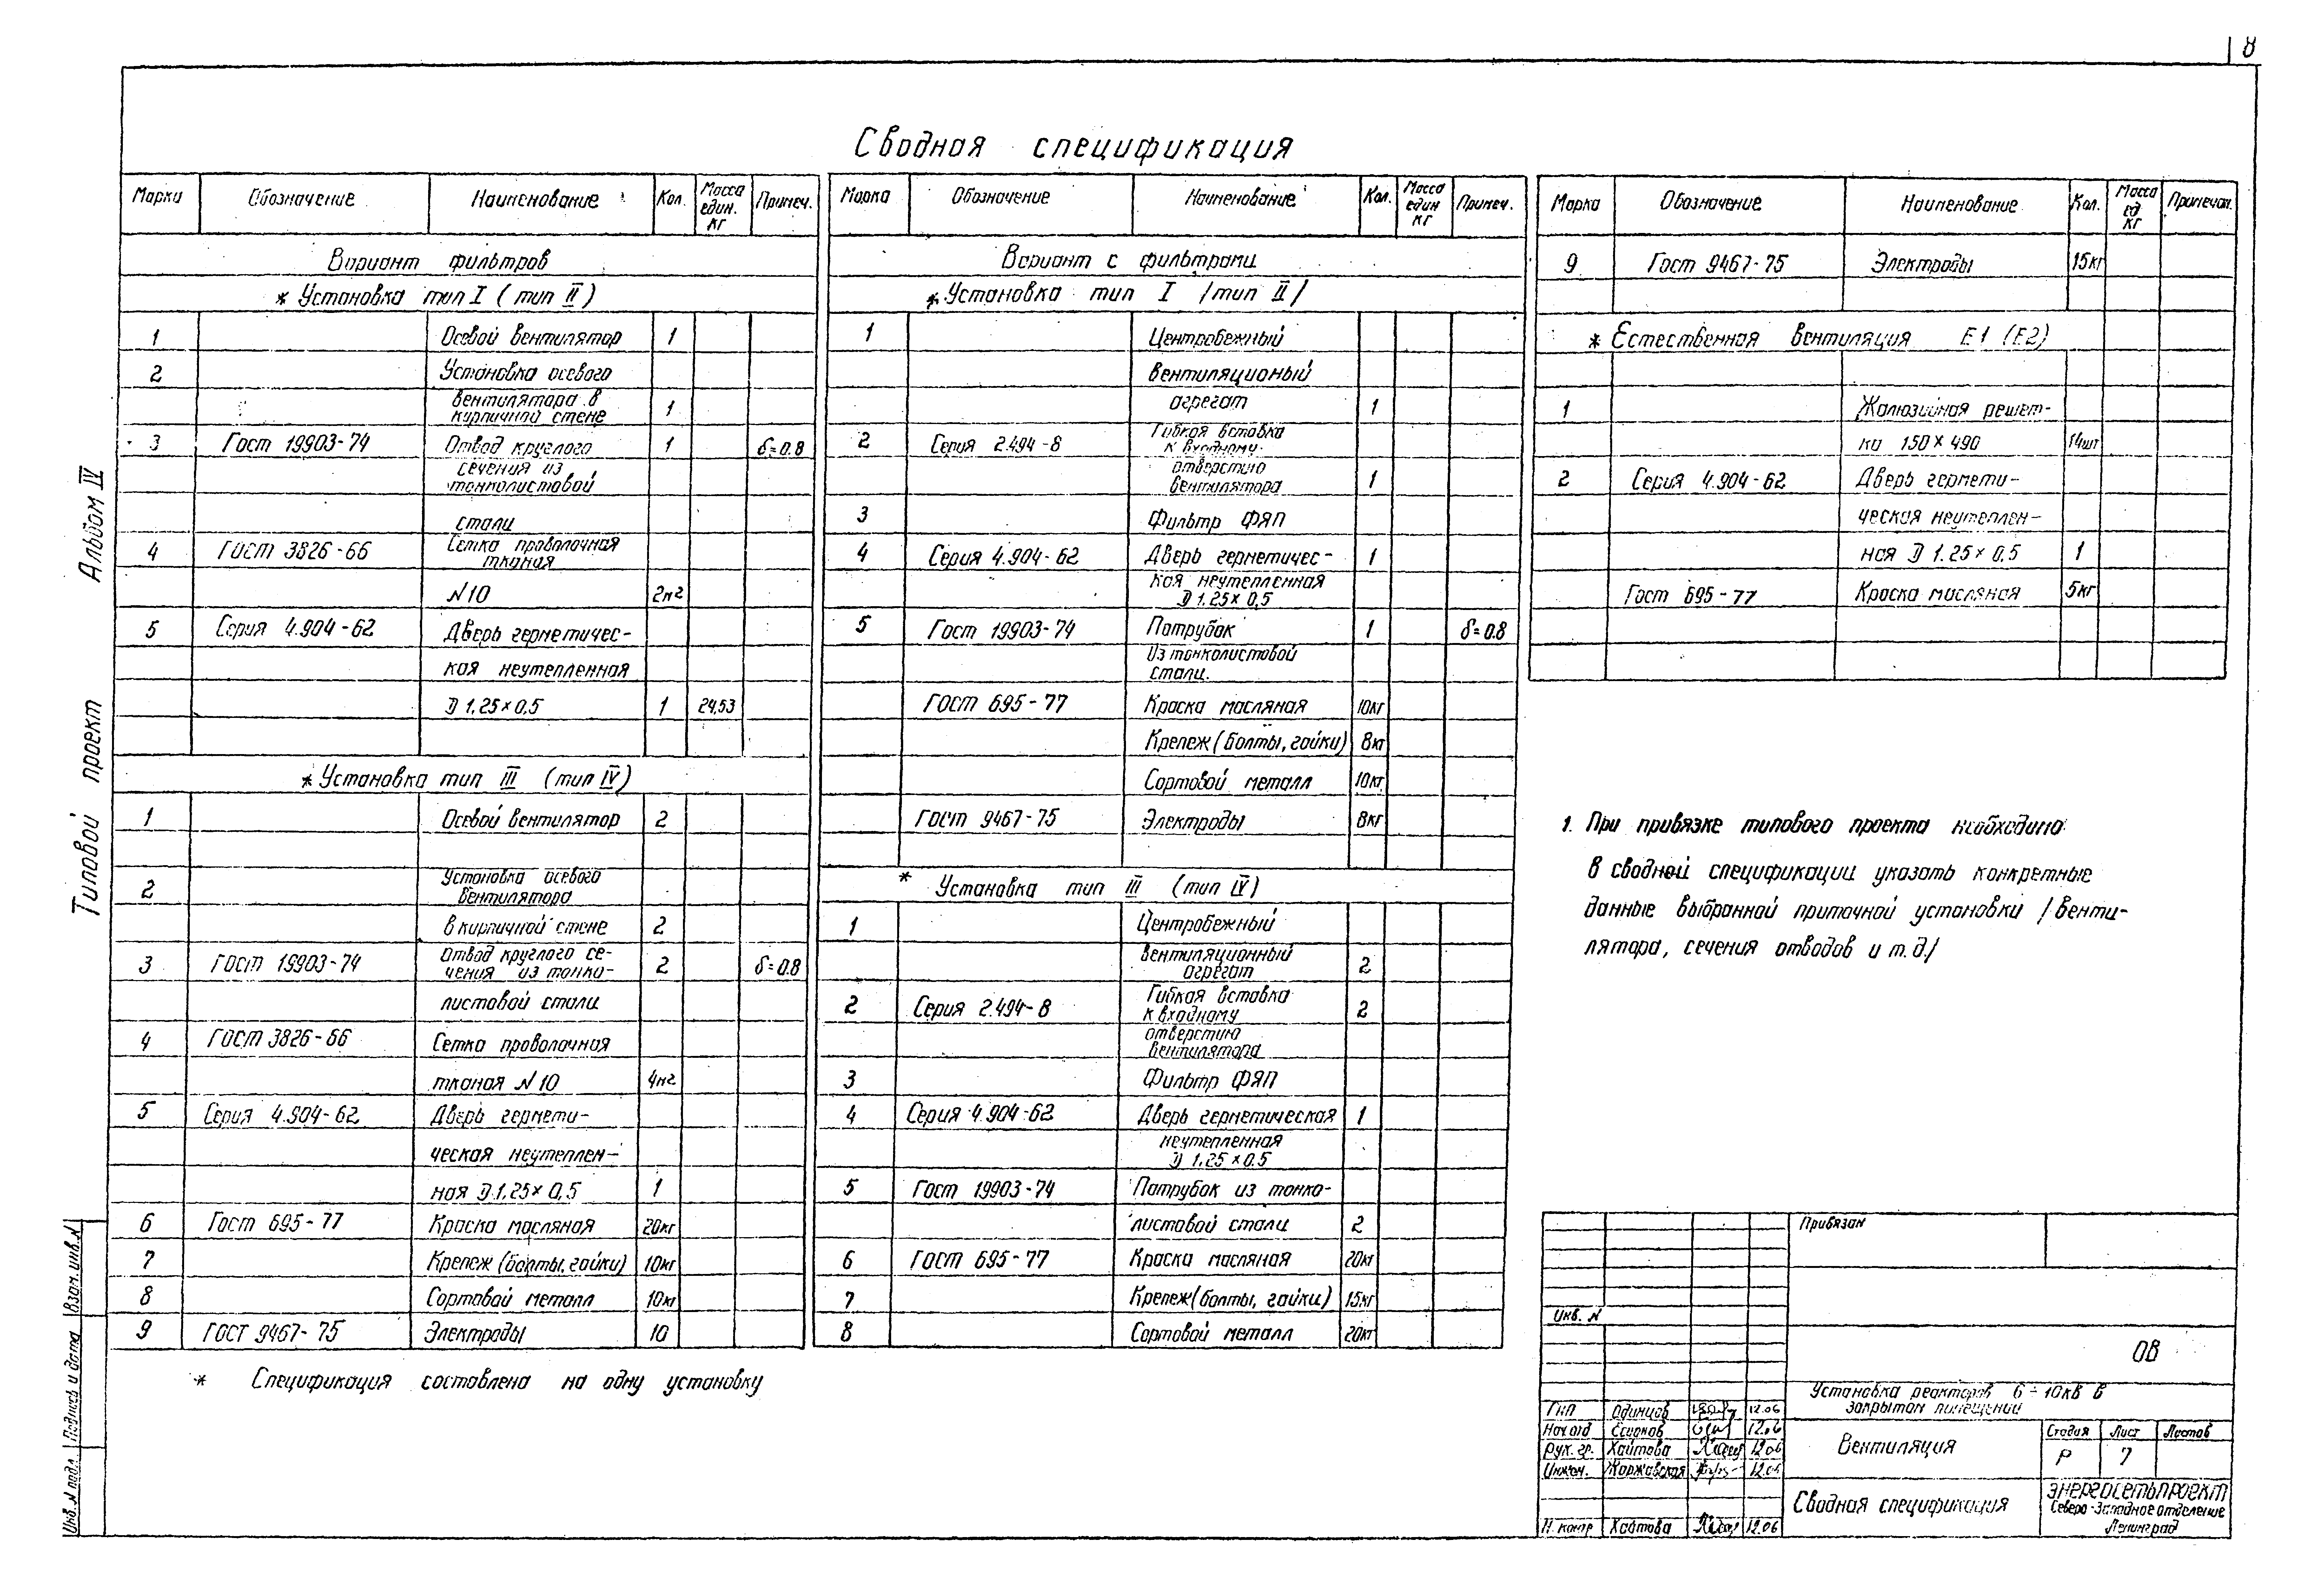 8
Сводная спецификация
Марки Обозначение Наименование Кол. Масса един. кг Примеч.
Вариант фильтров
* Установка тип I (тип II)
1 Осевой вентилятор 1
2 Установка осевого
вентилятора в
кирпичной стене 1
3 Гост 19903-74 Отвод круглого 1 δ=0.8
сечения из
тонколистовой
стали
4 Гост 3826-66 Сетка проволочная
тканая
N10 2м2
5 Серия 4.904-62 Дверь герметичес-
кая неутепленная
D 1.25×0.5 1 24,53
* Установка тип III (тип IV)
1 Осевой вентилятор 2
2 Установка осевого
вентилятора
в кирпичной стене 2
3 Гост 19903-74 Отвод круглого се-
чения из тонко- 2 δ=0.8
листовой стали
4 Гост 3826-66 Сетка проволочная
тканая N10 4м2
5 Серия 4.904-62 Дверь гермети-
ческая неутеплен-
ная D 1.25×0,5 1
6 Гост 695-77 Краска масляная 20кг
7 Крепеж (болты, гайки) 10кг
8 Сортовой металл 10кг
9 ГОСТ 9467-75 Электроды 10
* Спецификация составлена на одну установку
Марка Обозначение Наименование Кол. Масса един кг Примеч.
Вариант с фильтрами
* Установка тип I /тип II/
1 Центробежный
вентиляционый
агрегат 1
2 Серия 2.494-8 Гибкая вставка
к входному
отверстию
вентилятора 1
3 Фильтр ФЯП
4 Серия 4.904-62 Дверь герметичес- 1
кая неутепленная
D 1.25×0,5
5 Гост 19903-74 Патрубок 1 δ=0.8
Из тонколистовой
стали.
Гост 695-77 Краска масляная 10кг
Крепеж (болты, гайки) 8кг
Сортовой металл 10кг
Гост 9467-75 Электроды 8кг
* Установка тип III (тип IV)
1 Центробежный
вентиляционный
агрегат 2
2 Серия 2.494-8 Гибкая вставка
к входному 2
отверстию
вентилятора
3 Фильтр ФЯП
4 Серия 4.904-62 Дверь герметическая 1
неутепленная
D 1.25×0.5
5 Гост 19903-74 Патрубок из тонко-
листовой стали 2
6 Гост 695-77 Краска масляная 20кг
7 Крепеж (болты, гайки) 15кг
8 Сортовой металл 20кг
Марка Обозначение Наименование Кол. Масса ед кг Примечан.
9 Гост 9467-75 Электроды 15кг
* Естественная вентиляция Е1 (Е2)
1 Жалюзийная решет-
ка 150×490 14шт
2 Серия 4.904-62 Дверь гермети-
ческая неутеплен-
ная D 1.25×0,5 1
Гост 695-77 Краска масляная 5кг
1. При привязке типового проекта необходимо
в сводной спецификации указать конкретные
данные выбранной приточной установки /венти-
лятора, сечения отводов и т.д./
Привязан
Инв. N
ОВ
Установка реакторов 6-10кВ в
закрытом помещении
ГИП Одинцов 12.06
Нач отд 12.06
Рук. гр. Хаитова 12.06
Инжен. 12.06
Н. контр Хаитова 12.06
Вентиляция
Стадия Лист Листов
Р 7
Сводная спецификация
ЭНЕРГОСЕТЬПРОЕКТ
Северо-Западное отделение
Ленинград
Типовой проект Альбом IV
Инв. N подл. Подпись и дата Взам. инв. N